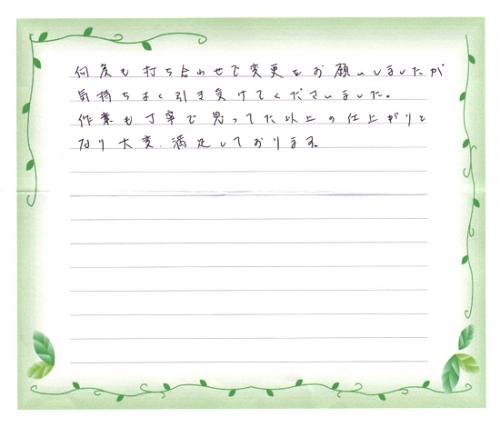 何度も打ち合わせで変更をお願いしましたが
気持ちよく引き受けてくださいました。
作業も丁寧で思ってた以上の仕上がりと
なり大変、満足しております。